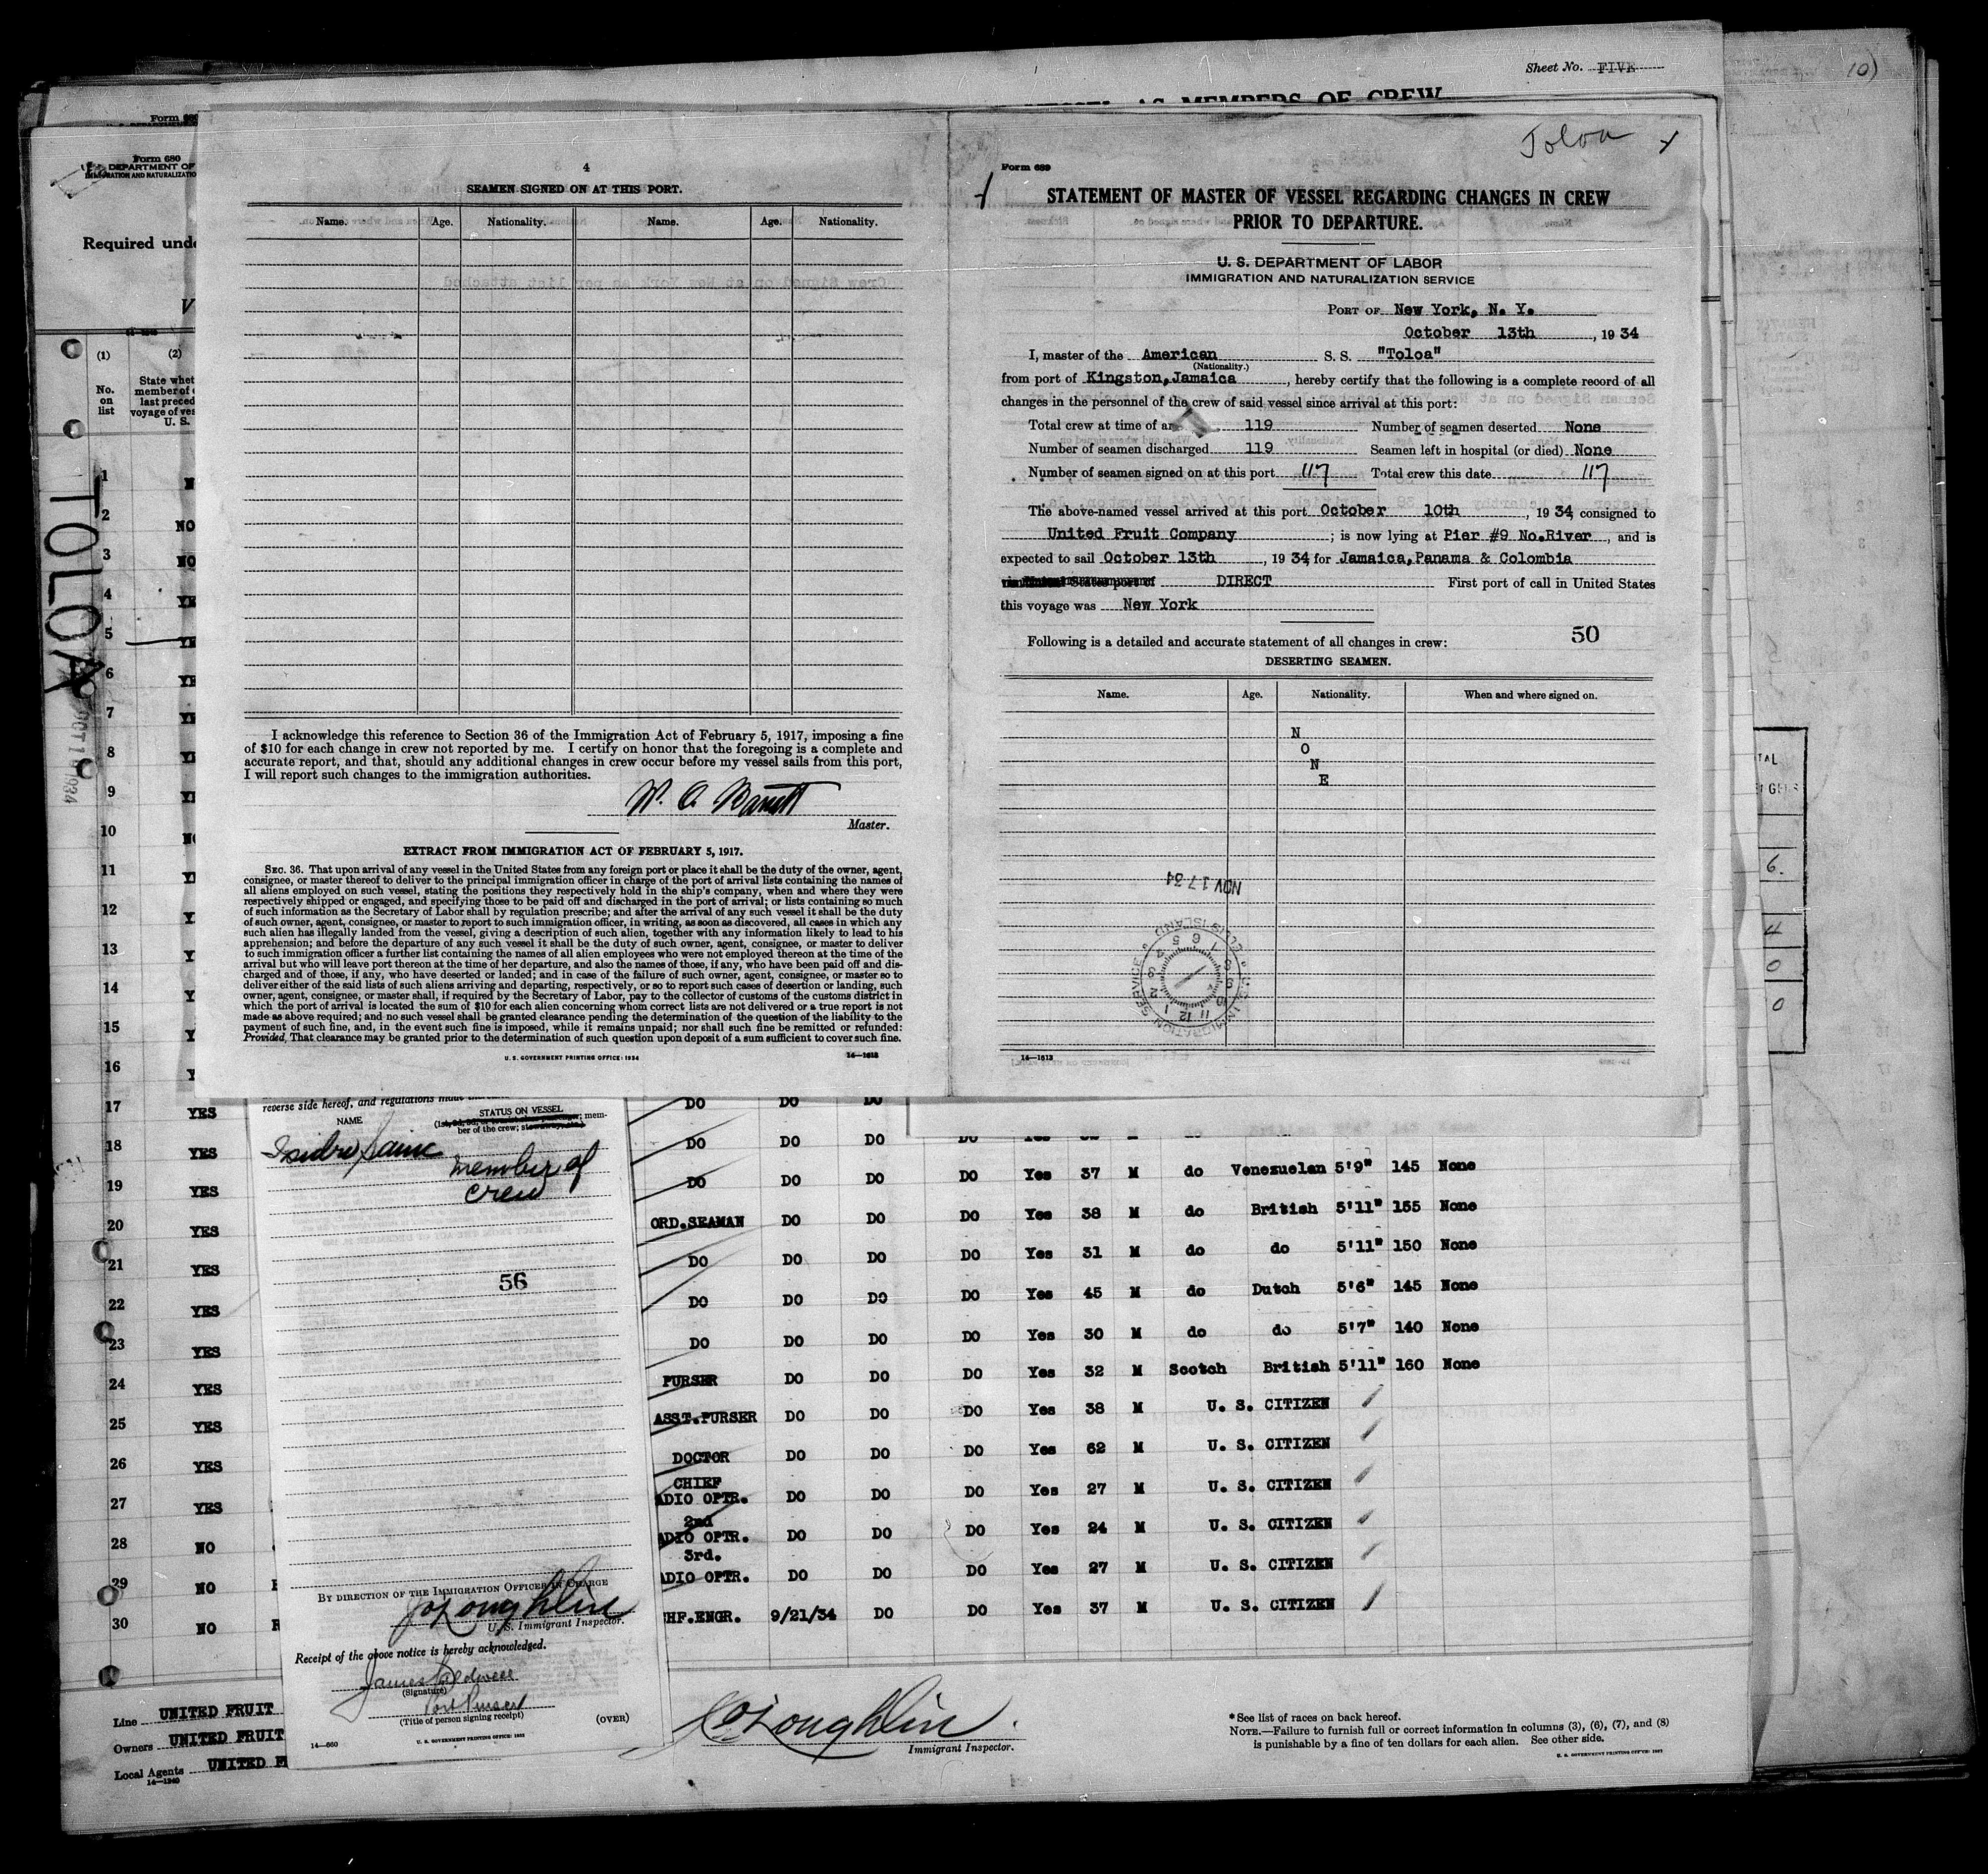 Sheet No. FIVE
10)
AS MEMBERS OF CREW
Form 680
Form 680
DEPARTMENT OF
Required unde
TOLOA
(1)
(2)
No.
on
list
State whet
member of
last preced
voyage of ves
U. S.
4
SEAMEN SIGNED ON AT THIS PORT.
Name. Age. Nationality. Name. Age. Nationality.
I acknowledge this reference to Section 36 of the Immigration Act of February 5, 1917, imposing a fine
of $10 for each change in crew not reported by me. I certify on honor that the foregoing is a complete and
accurate report, and that, should any additional changes in crew occur before my vessel sails from this port,
I will report such changes to the immigration authorities.
W. A. Barrett
Master.
EXTRACT FROM IMMIGRATION ACT OF FEBRUARY 5, 1917.
SEC. 36. That upon arrival of any vessel in the United States from any foreign port or place it shall be the duty of the owner, agent,
consignee, or master thereof to deliver to the principal immigration officer in charge of the port of arrival lists containing the names of
all aliens employed on such vessel, stating the positions they respectively hold in the ship's company, when and where they were
respectively shipped or engaged, and specifying those to be paid off and discharged in the port of arrival; or lists containing so much
of such information as the Secretary of Labor shall by regulation prescribe; and after the arrival of any such vessel it shall be the duty
of such owner, agent, consignee, or master to report to such immigration officer, in writing, as soon as discovered, all cases in which any
such alien has illegally landed from the vessel, giving a description of such alien, together with any information likely to lead to his
apprehension; and before the departure of any such vessel it shall be the duty of such owner, agent, consignee, or master to deliver
to such immigration officer a further list containing the names of all alien employees who were not employed thereon at the time of the
arrival but who will leave port thereon at the time of her departure, and also the names of those, if any, who have been paid off and dis-
charged and of those, if any, who have deserted or landed; and in case of the failure of such owner, agent, consignee, or master so to
deliver either of the said lists of such aliens arriving and departing, respectively, or so to report such cases of desertion or landing, such
owner, agent, consignee, or master shall, if required by the Secretary of Labor, pay to the collector of customs of the customs district in
which the port of arrival is located the sum of $10 for each alien concerning whom correct lists are not delivered or a true report is not
made as above required; and no such vessel shall be granted clearance pending the determination of the question of the liability to the
payment of such fine, and, in the event such fine is imposed, while it remains unpaid; nor shall such fine be remitted or refunded:
Provided, That clearance may be granted prior to the determination of such question upon deposit of a sum sufficient to cover such fine.
U. S. GOVERNMENT PRINTING OFFICE: 1934 14—1613
Toloa
Form 689
STATEMENT OF MASTER OF VESSEL REGARDING CHANGES IN CREW
PRIOR TO DEPARTURE.
U. S. DEPARTMENT OF LABOR
IMMIGRATION AND NATURALIZATION SERVICE
PORT OF New York, N. Y.
October 13th, 1934
I, master of the American S. S. "Toloa"
(Nationality.)
from port of Kingston,Jamaica, hereby certify that the following is a complete record of all
changes in the personnel of the crew of said vessel since arrival at this port:
Total crew at time of ar 119 Number of seamen deserted None
Number of seamen discharged 119 Seamen left in hospital (or died) None
Number of seamen signed on at this port 117 Total crew this date 117
The above-named vessel arrived at this port October 10th, 1934, consigned to
United Fruit Company; is now lying at Pier #9 No.River, and is
expected to sail October 13th, 1934, for Jamaica,Panama & Colombia
States port of DIRECT First port of call in United States
this voyage was New York
50
Following is a detailed and accurate statement of all changes in crew:
DESERTING SEAMEN.
Name. Age. Nationality. When and where signed on.
N
O
N
E
NOV 17 34
U.S. IMMIGRATION SERVICE ELLIS ISLAND
14—1613
1
2 NO
3 NO
4
5
6
7
8
9
10
11
12
13
14
15
16
reverse side hereof, and regulations made
NAME STATUS ON VESSEL
mem-
ber of the crew;
Isidro Sainc member of
crew
56
BY DIRECTION OF THE IMMIGRATION OFFICER IN CHARGE
J O'Loughlin
U. S. Immigrant Inspector.
Receipt of the above notice is hereby acknowledged.
James Caldwell
(Signature)
Port Purser
(Title of person signing receipt)
(OVER)
14—660 U. S. GOVERNMENT PRINTING OFFICE: 1933
17 YES DO DO DO
18 YES DO DO DO DO
19 YES DO DO DO DO Yes 37 M do Venezuelan 5'9" 145 None
20 YES ORD.SEAMAN DO DO DO Yes 38 M do British 5'11" 155 None
21 YES DO DO DO DO Yes 31 M do do 5'11" 150 None
22 YES DO DO DO DO Yes 45 M do Dutch 5'6" 145 None
23 YES DO DO DO DO Yes 30 M do do 5'7" 140 None
24 YES PURSER DO DO DO Yes 32 M Scotch British 5'11" 160 None
25 YES ASST.PURSER DO DO DO Yes 38 M U. S. CITIZEN
26 YES DOCTOR DO DO DO Yes 62 M U. S. CITIZEN
27 YES CHIEF
ADIO OPTR. DO DO DO Yes 27 M U. S. CITIZEN
28 NO 2nd
ADIO OPTR. DO DO DO Yes 24 M U. S. CITIZEN
29 NO 3rd.
ADIO OPTR. DO DO DO Yes 27 M U. S. CITIZEN
30 NO HF.ENGR. 9/21/34 DO DO Yes 37 M U. S. CITIZEN
Line UNITED FRUIT
Owners UNITED FRUIT
Local Agents UNITED F
14—1240
J O'Loughlin
Immigrant Inspector.
*See list of races on back hereof.
NOTE.—Failure to furnish full or correct information in columns (3), (6), (7), and (8)
is punishable by a fine of ten dollars for each alien. See other side.
TAL
6.
4
0
0